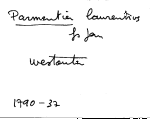 Parmentier Laurentius
fs Jan
Westouter
1990-32